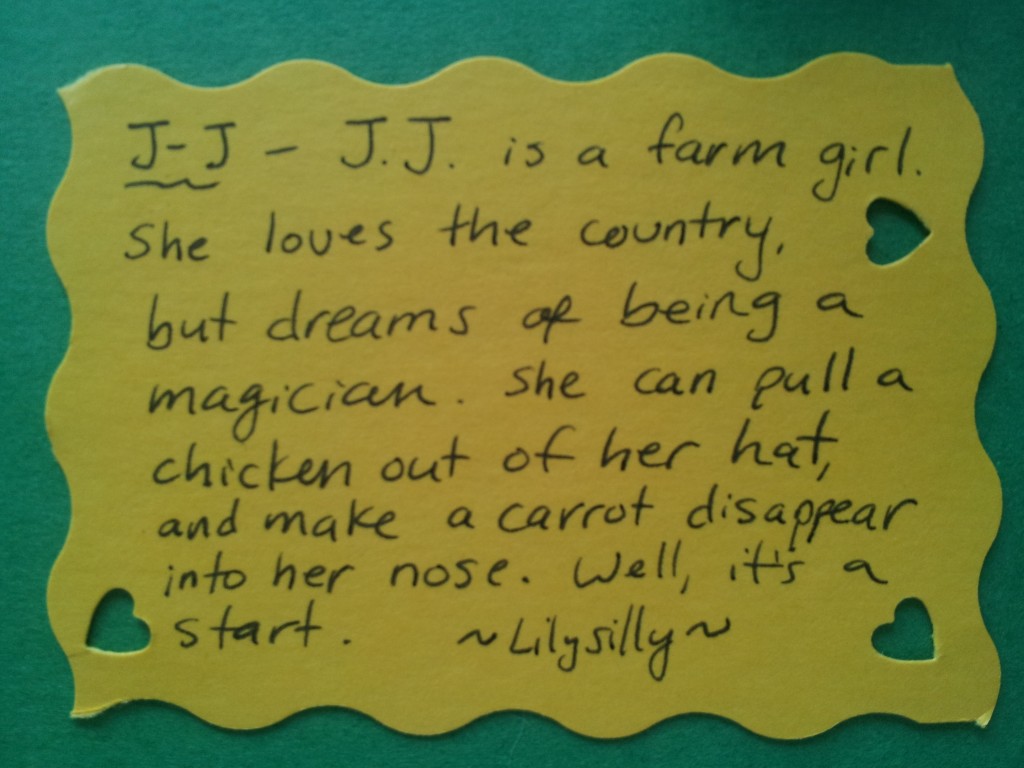 J-J - J.J. is a farm girl.
She loves the country,
but dreams of being a
magician. She can pull a
chicken out of her hat,
and make a carrot disappear
into her nose. Well, it's a
start. ~Lilysilly~